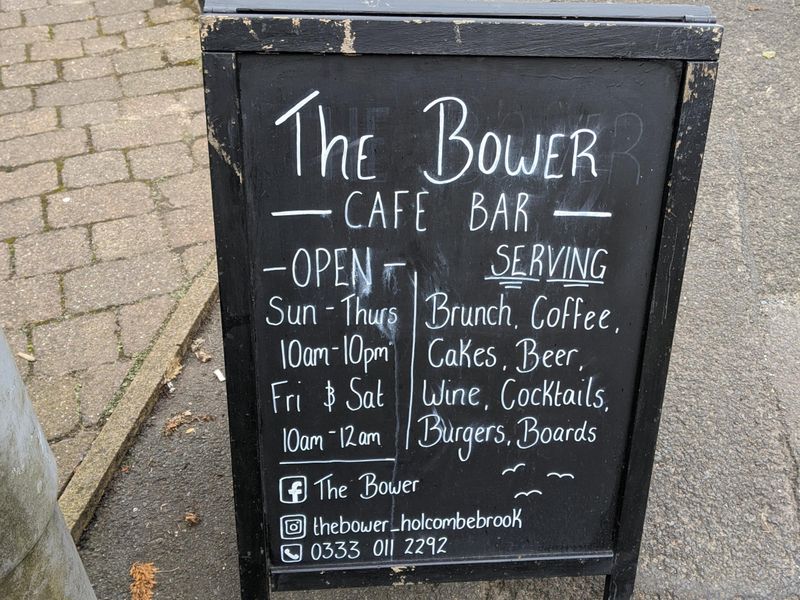 The Bower
CAFE BAR
- OPEN -
Sun - Thurs
10am - 10pm
Fri & Sat
10am - 12am
SERVING
Brunch, Coffee,
Cakes, Beer,
Wine, Cocktails,
Burgers, Boards
f The Bower
thebower_holcombebrook
0333 011 2292